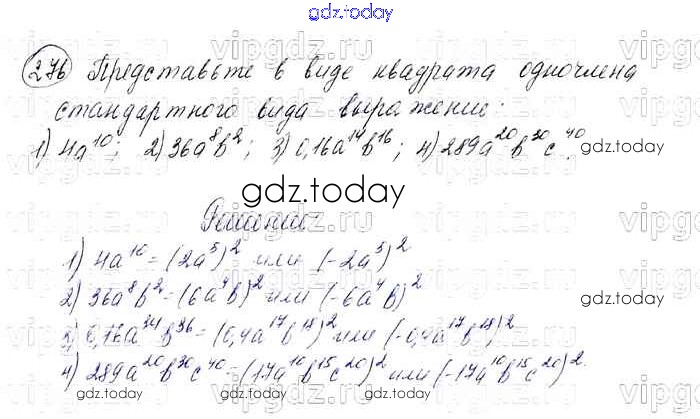 gdz.today
276 Представьте в виде квадрата одночлена
стандартного вида выражение:
1) 4a¹⁰; 2) 36a⁸b²; 3) 0,16a¹⁴b¹⁶; 4) 289a²⁰b³⁰c⁴⁰.
gdz.today
gdz.today
Решение:
1) 4a¹⁰ = (2a⁵)² или (-2a⁵)²
2) 36a⁸b² = (6a⁴b)² или (-6a⁴b)²
gdz.today
3) 0,16a³⁴b³⁶ = (0,4a¹⁷b¹⁸)² или (-0,4a¹⁷b¹⁸)²
4) 289a²⁰b³⁰c⁴⁰ = (17a¹⁰b¹⁵c²⁰)² или (-17a¹⁰b¹⁵c²⁰)².
gdz.today